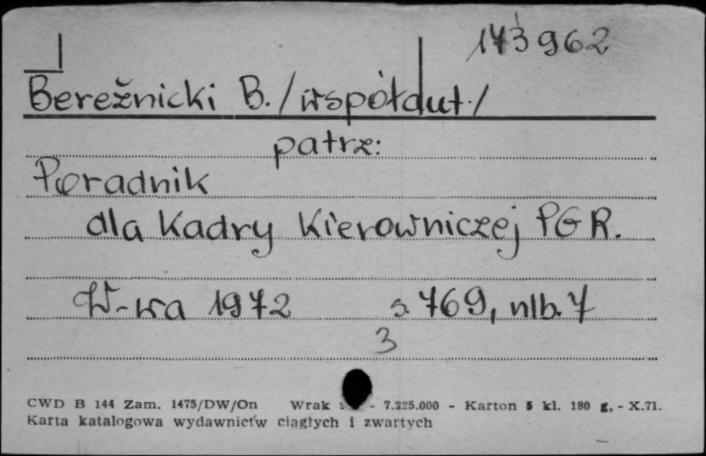 173962
Bereźnicki B. /współaut./
patrz:
Poradnik
dla Kadry Kierowniczej PGR.
W-wa 1972 s. 769, nlb. 7
3
CWD B 144 Zam. 1475/DW/On Wrak - 7.225.000 - Karton 5 kl. 180 g. - X.71.
Karta katalogowa wydawnictw ciągłych i zwartych